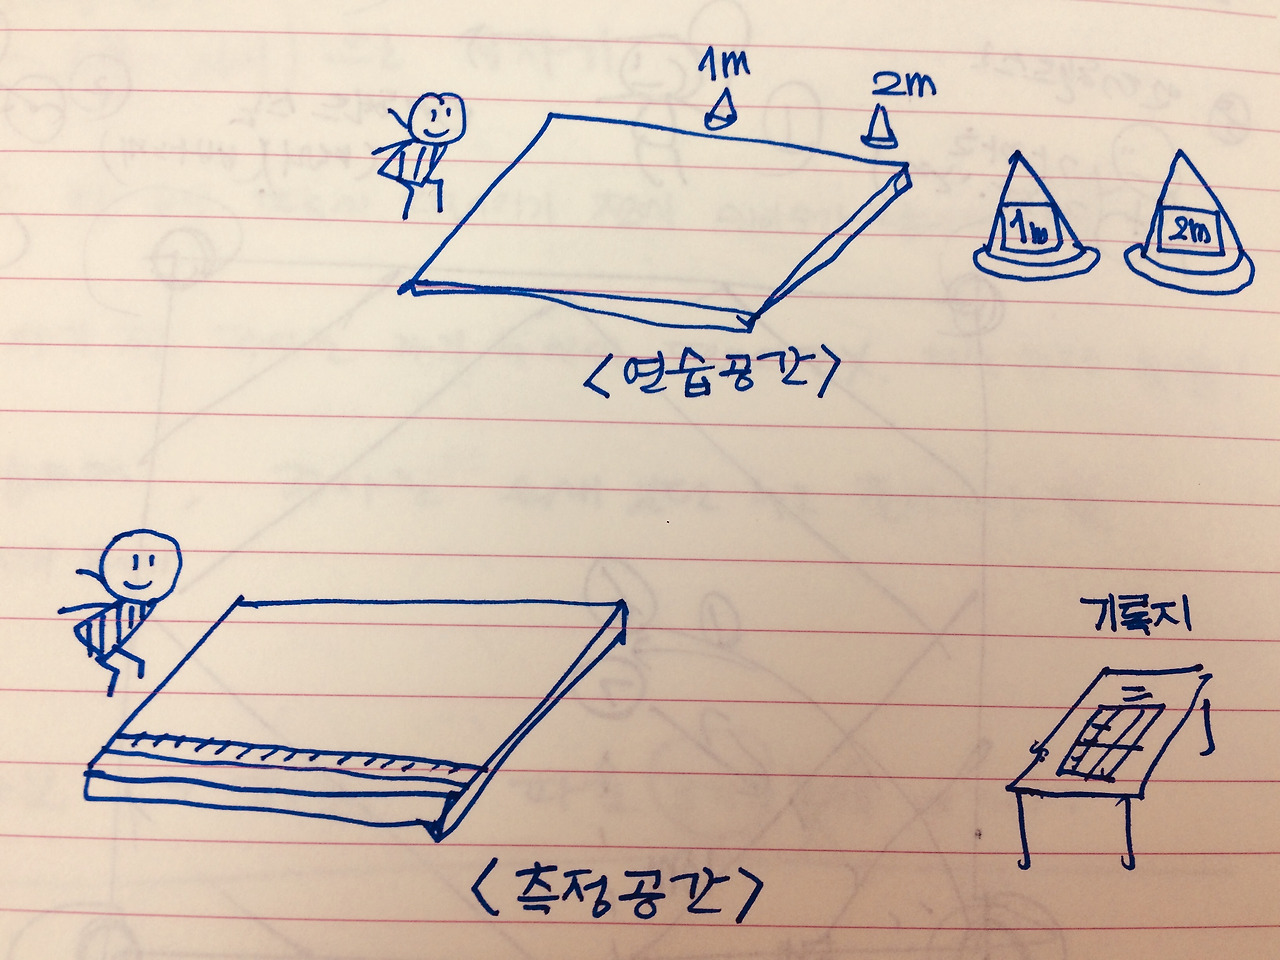 1m
2m
1m
2m
<연습공간>
기록지
<측정공간>